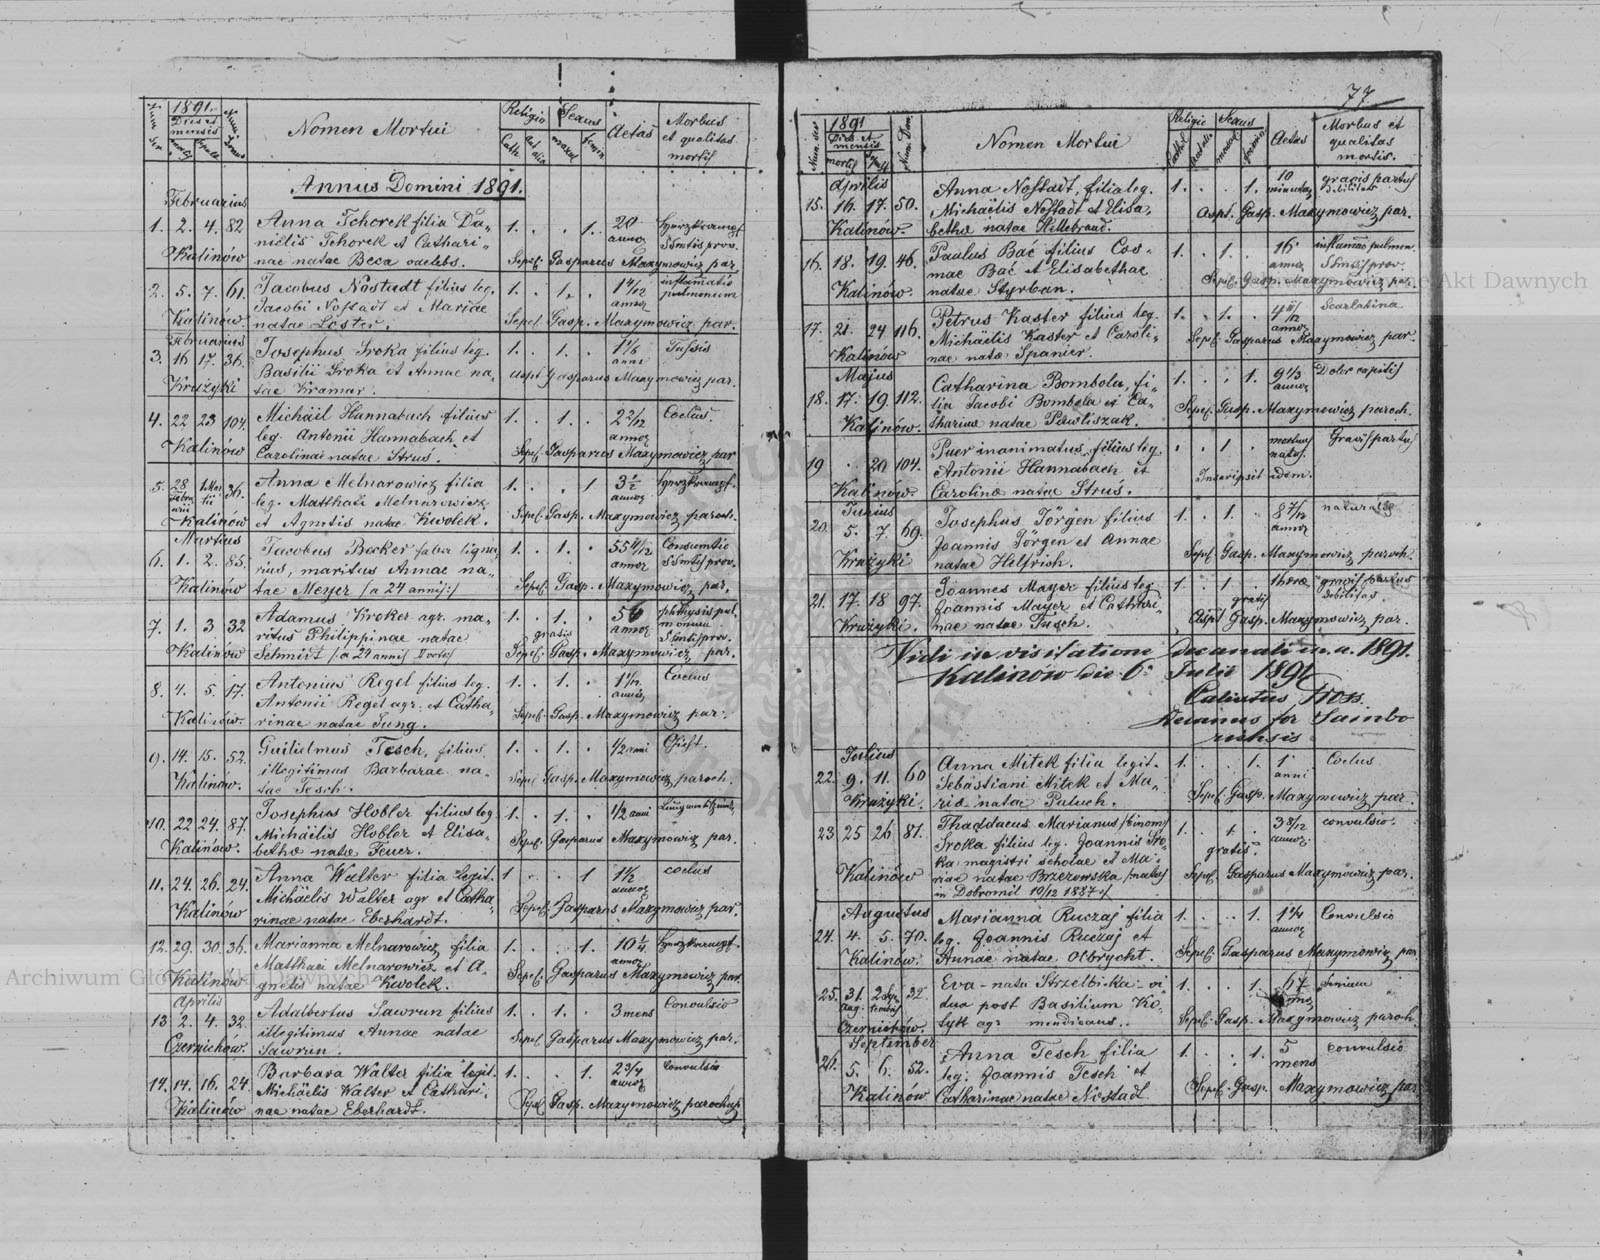 1891.
Dies et mensis
Num. ser
Nomen Mortui
Religio
Sexus
Aetas
Morbus et qualitas mortis
Cath.
aut alia
mascul
femin
Annus Domini 1891.
Februarius
1. 2. 4. 82 Anna Tchorek filia Da- 1. . . 1. 20
nielis Tchorek et Cathari- annor Sstis prov.
Kalinów nae natae Beca caelebs. Sepel. Gasparus Maxymowicz par.
2. 5. 7. 61. Jacobus Nostadt filius leg. 1. . 1. . 1 inflamatio
Jacobi Nostadt et Mariae annor pulmonum
Kalinów. natae Löster. Sepel. Gasp. Maxymowicz par.
Februarius
3. 16 17. 36. Josephus Sroka filius leg. 1. . 1. . 1 1/6 Tussis
Basilii Sroka et Annae na- anni
Krużyki tae Kramar. Gasparus Maxymowicz par.
4. 22 23 104 Michäel Hannabach filius 1. . 1. . 2 2/12 Coelus.
leg. Antonii Hannabach et annor
Kalinów Carolinae natae Struś. Sepel. Gasparus Maxymowicz par
5. 28 36. Anna Melnarowicz filia 1. . . 1 3 1/2
leg. Matthaei Melnarowicz annor
Kalinów et Agnetis natae Kwolek. Sepel. Gasp. Maxymowicz paroch.
Martius
6. 1. 2. 85. Jacobus Becker faber ligna- 1. . 1. . 55 4/12 Consumtio
rius, maritus Annae na- annor Sstis prov.
Kalinów tae Meyer /a 24 annis/ Sepel. Gasp. Maxymowicz par.
7. 1. 3 32 Adamus Kroker agr. ma- 1. . 1. . phthysis pul-
ritus Philippinae natae gratis annor monum
Kalinów Schmidt /a 24 annis Sepel. Gasp. Maxymowicz par.
8. 4. 5. 17. Antonius Regel filius leg. 1. . 1. . Coelus
Antonii Regel agr. et Catha-
Kalinów. rinae natae Jung. Sepel. Gasp. Maxymowicz par.
9. 14. 15. 52. Guilielmus Tesch, filius 1. . 1. . 1/2 anni
illegitimus Barbarae na-
Kalinów. tae Tesch. Sepel Gasp. Maxymowicz paroch.
10. 22 24. 87. Josephus Hobler filius leg 1. . 1. . 1/2 anni
Michäelis Hobler et Elisa-
Kalinów. bethae natae Feuer. Sepel. Gasparus Maxymowicz par.
11. 24. 26. 24. Anna Walter filia legit. 1 . . 1 1 1/2 coelus
Michäelis Walter agr et Catha- annor
Kalinów rinae natae Eberhardt. Sepel. Gasparus Maxymowicz par.
12. 29. 30. 36. Marianna Melnarowicz filia 1. . . 1. 10 1/4
Matthaei Melnarowicz et A- annor
Kalinów gnetis natae Kwolek. Sepel. Gasparus Maxymowicz par.
Aprilis
13 2. 4. 32. Adalbertus Sawrun filius 1. . 1. . 3 mens Convulsio
illegitimus Annae natae
Czernichow. Sawrun. Sepel. Gasparus Maxymowicz par.
14. 14. 16. 24. Barbara Walter filia legit. 1. . . 1. 2 3/4 Convulsio
Michäelis Walter et Cathari- annor
Kalinów nae natae Eberhardt. Sepel. Gasp. Maxymowicz parochus
77
Num. ser
1891
Dies et mensis
mortis
Num. Dom.
Nomen Mortui
Religio
Sexus
Aetas
Morbus et qualitas mortis.
Aprilis
15. 16. 17. 50. Anna Nostadt, filia leg. 1. . . 1. 10 gravis partus
Michäelis Nostadt et Elisa- debilitas
Kalinów. bethae natae Hillebrand. Gasp. Maxymowicz par.
16. 18. 19. 46. Paulus Bać filius Cos- 1. . 1. . 16 inflamac pulmon.
mae Bać et Elisabethae annor Sstis prov.
Kalinów. natae Styrban. Sepel. Gasp. Maxymowicz par.
17. 21. 24 116. Petrus Kaster filius leg. 1. . 1. . Scarlatina
Michäelis Kaster et Caroli- annor
Kalinów nae natae Spanier. Sepel. Gasparus Maxymowicz par.
Majus
18. 17. 19 112. Catharina Bombola, fi- 1. . . 1. 9 1/3 Dolor capitis
lia Jacobi Bombola et Ca- annor
Kalinów. tharinae natae Pawliszak. Sepel. Gasp. Maxymowicz paroch.
19 . 20 104. Puer inanimatus filius leg. . . 1 . mortuus Gravis partus
Antonii Hannabach et natus.
Kalinów. Carolinae natae Struś. Inscripsit idem.
Junius
20. 5. 7. 69. Josephus Jörgen filius 1. . 1. . 8 7/12 naturalis
Joannis Jörgen et Annae annor
Krużyki natae Helfrich. Sepel. Gasp. Maxymowicz paroch.
21. 17. 18 97. Joannes Mayer filius leg. 1. . 1 . 1 horae gravis partus
Joannis Mayer et Cathari- gratis debilitas
Krużyki. nae natae Tesch. Gasp. Maxymowicz par.
Vidi in visitatione decanali in a. 1891.
Kalinów die 6. Julii 1891
Decanus for Sambo
riensis
Julius
22. 9. 11. 60 Anna Mitek filia legit. 1. . . 1. 1 Coelus
Sebastiani Mitek et Ma- anni
Krużyki. riae natae Paluch. Sepel. Gasp. Maxymowicz par.
23 25 26 81. Thaddaeus Marianus /binom/ 1. . 1. . 3 8/12 convulsio.
Sroka filius leg. Joannis Sro- gratis annor
ka magistri scholae et Ma-
Kalinów riae natae Brzezowska /natus Sepel. Gasparus Maxymowicz par.
in Dobromil 10/12 1887/
Augustus
24. 4. 5. 70. Marianna Ruczaj filia 1. . . 1. 1 1/4 Convulsio
leg. Joannis Ruczaj et annor
Kalinów. Annae natae Olbrycht. Sepel. Gasparus Maxymowicz par
25. 31. 2 32. Eva nata Strzelbicka vi- 1. . . 1. 67 Senium
Aug. dua post Basilium Ko-
Czernichów. tyk agr mendicans. Sepel. Gasp. Maxymowicz paroch.
September
26. 5. 6. 52. Anna Tesch filia 1. . . 1. 5 convulsio
leg. Joannis Tesch et mens
Kalinów Catharinae natae Nostadt. Sepel. Gasp. Maxymowicz par.